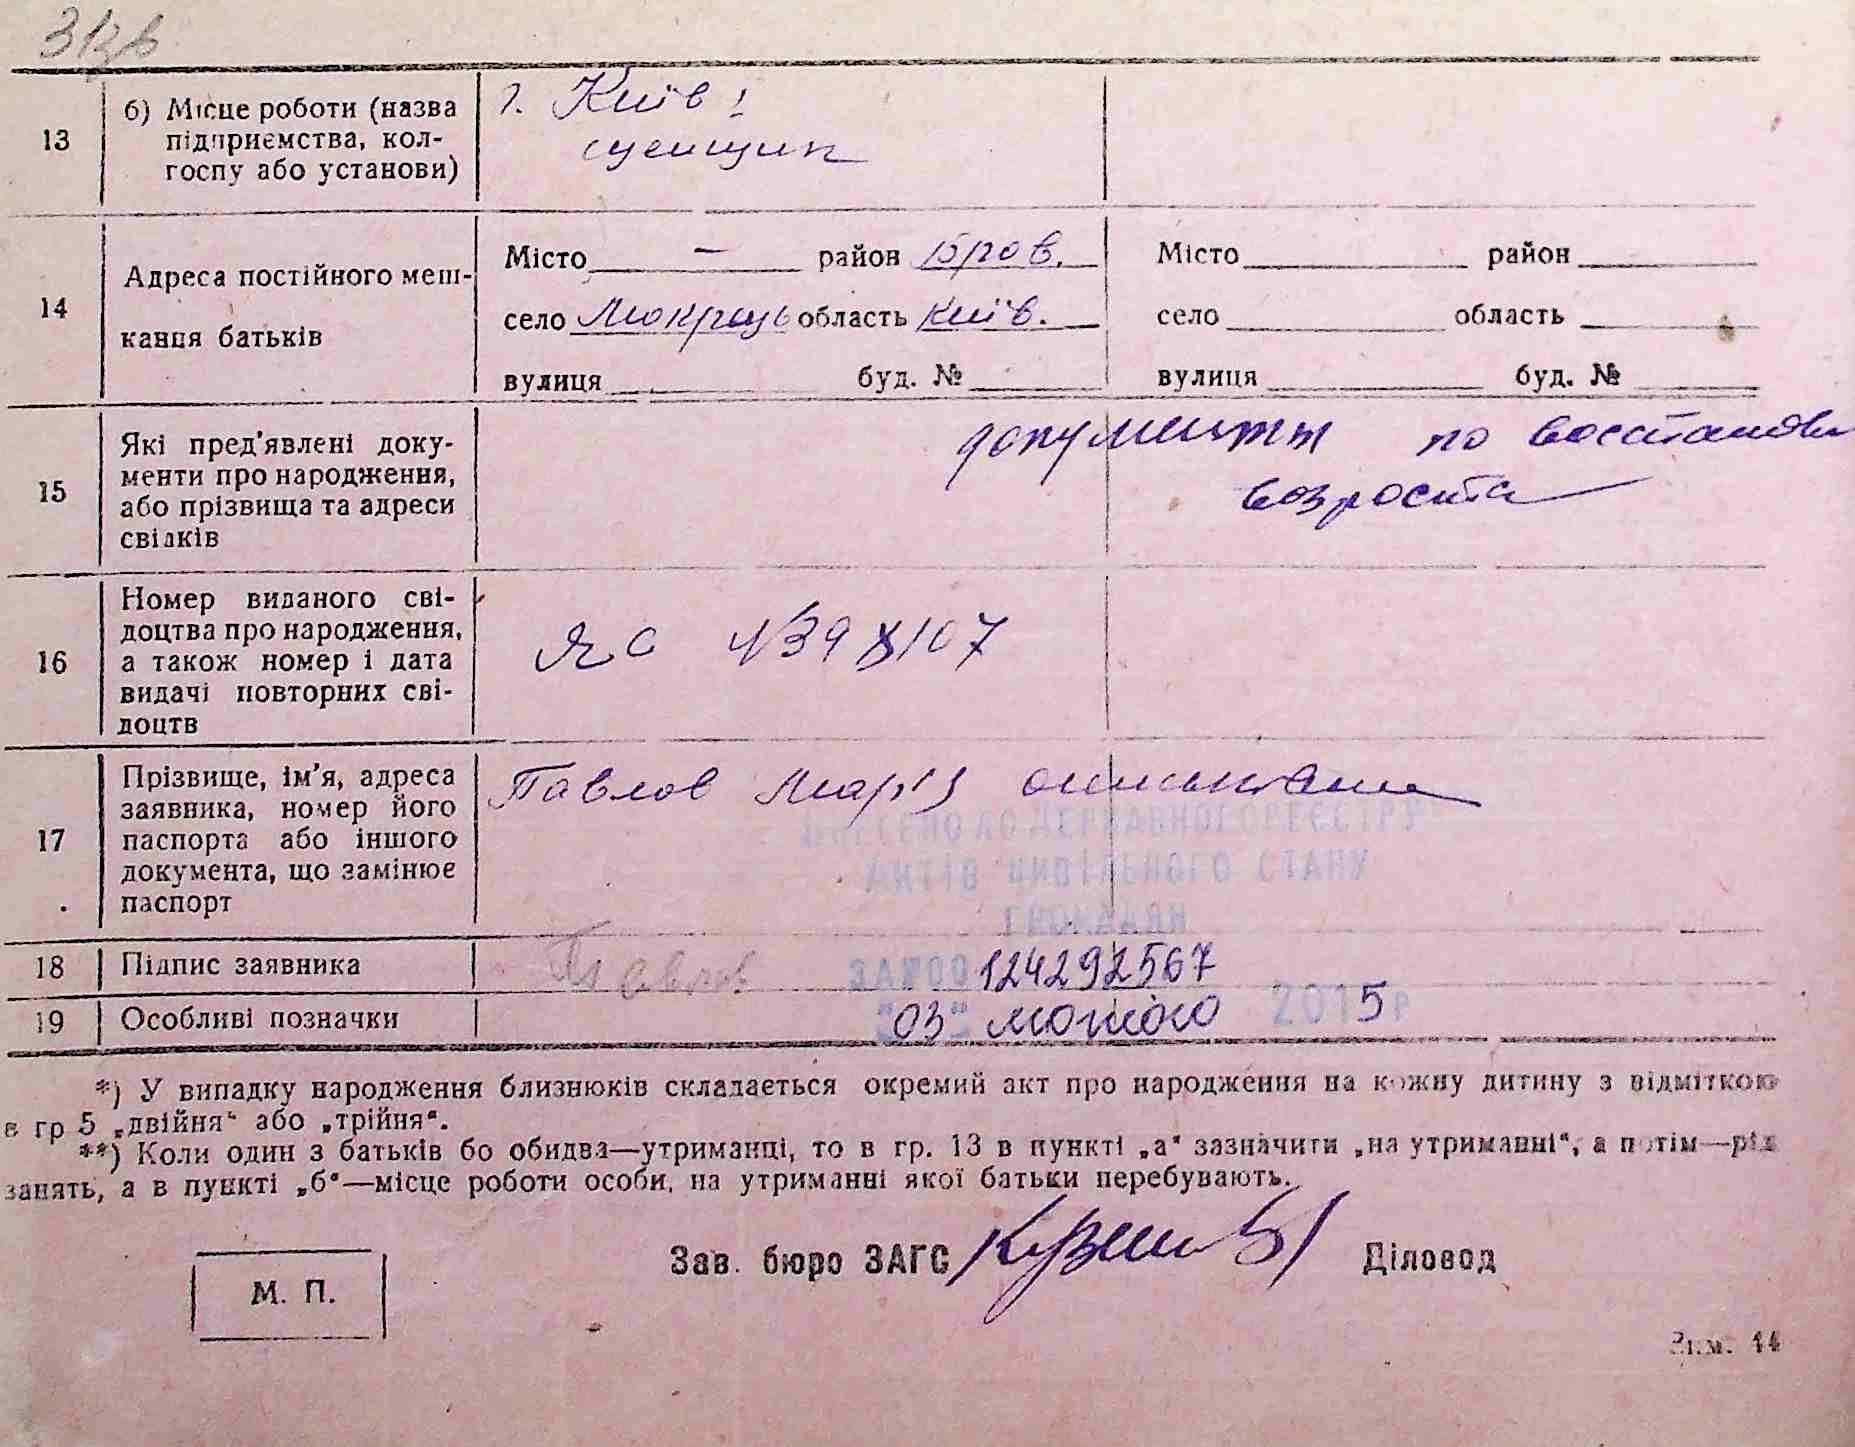 13
б) Місце роботи (назва
підприємства, кол-
госпу або установи)
г. Київ
сцепщик
14
Адреса постійного меш-
кання батьків
Місто – район Бров.
село Мокрець область Київ.
вулиця буд. №
Місто район
село область
вулиця буд. №
15
Які пред'явлені доку-
менти про народження,
або прізвища та адреси
свідків
документи по восстановл
возроста
16
Номер виданого сві-
доцтва про народження,
а також номер і дата
видачі повторних сві-
доцтв
ЯС №398107
17
Прізвище, ім'я, адреса
заявника, номер його
паспорта або іншого
документа, що замінює
паспорт
Павлов
ВНЕСЕНО ДО ДЕРЖАВНОГО РЕЄСТРУ
АКТІВ ЦИВІЛЬНОГО СТАНУ
ГРОМАДЯН
18
Підпис заявника
Павлов
ЗА №00 124292567
19
Особливі позначки
"03" лютого 2015 р
*) У випадку народження близнюків складається окремий акт про народження на кожну дитину з відміткою
в гр 5 „двійня“ або „трійня“.
**) Коли один з батьків бо обидва—утриманці, то в гр. 13 в пункті „а“ зазначити „на утриманні“, а потім—рід
занять, а в пункті „б“—місце роботи особи, на утриманні якої батьки перебувають.
Зав. бюро ЗАГС
Діловод
М. П.
Зам. 44